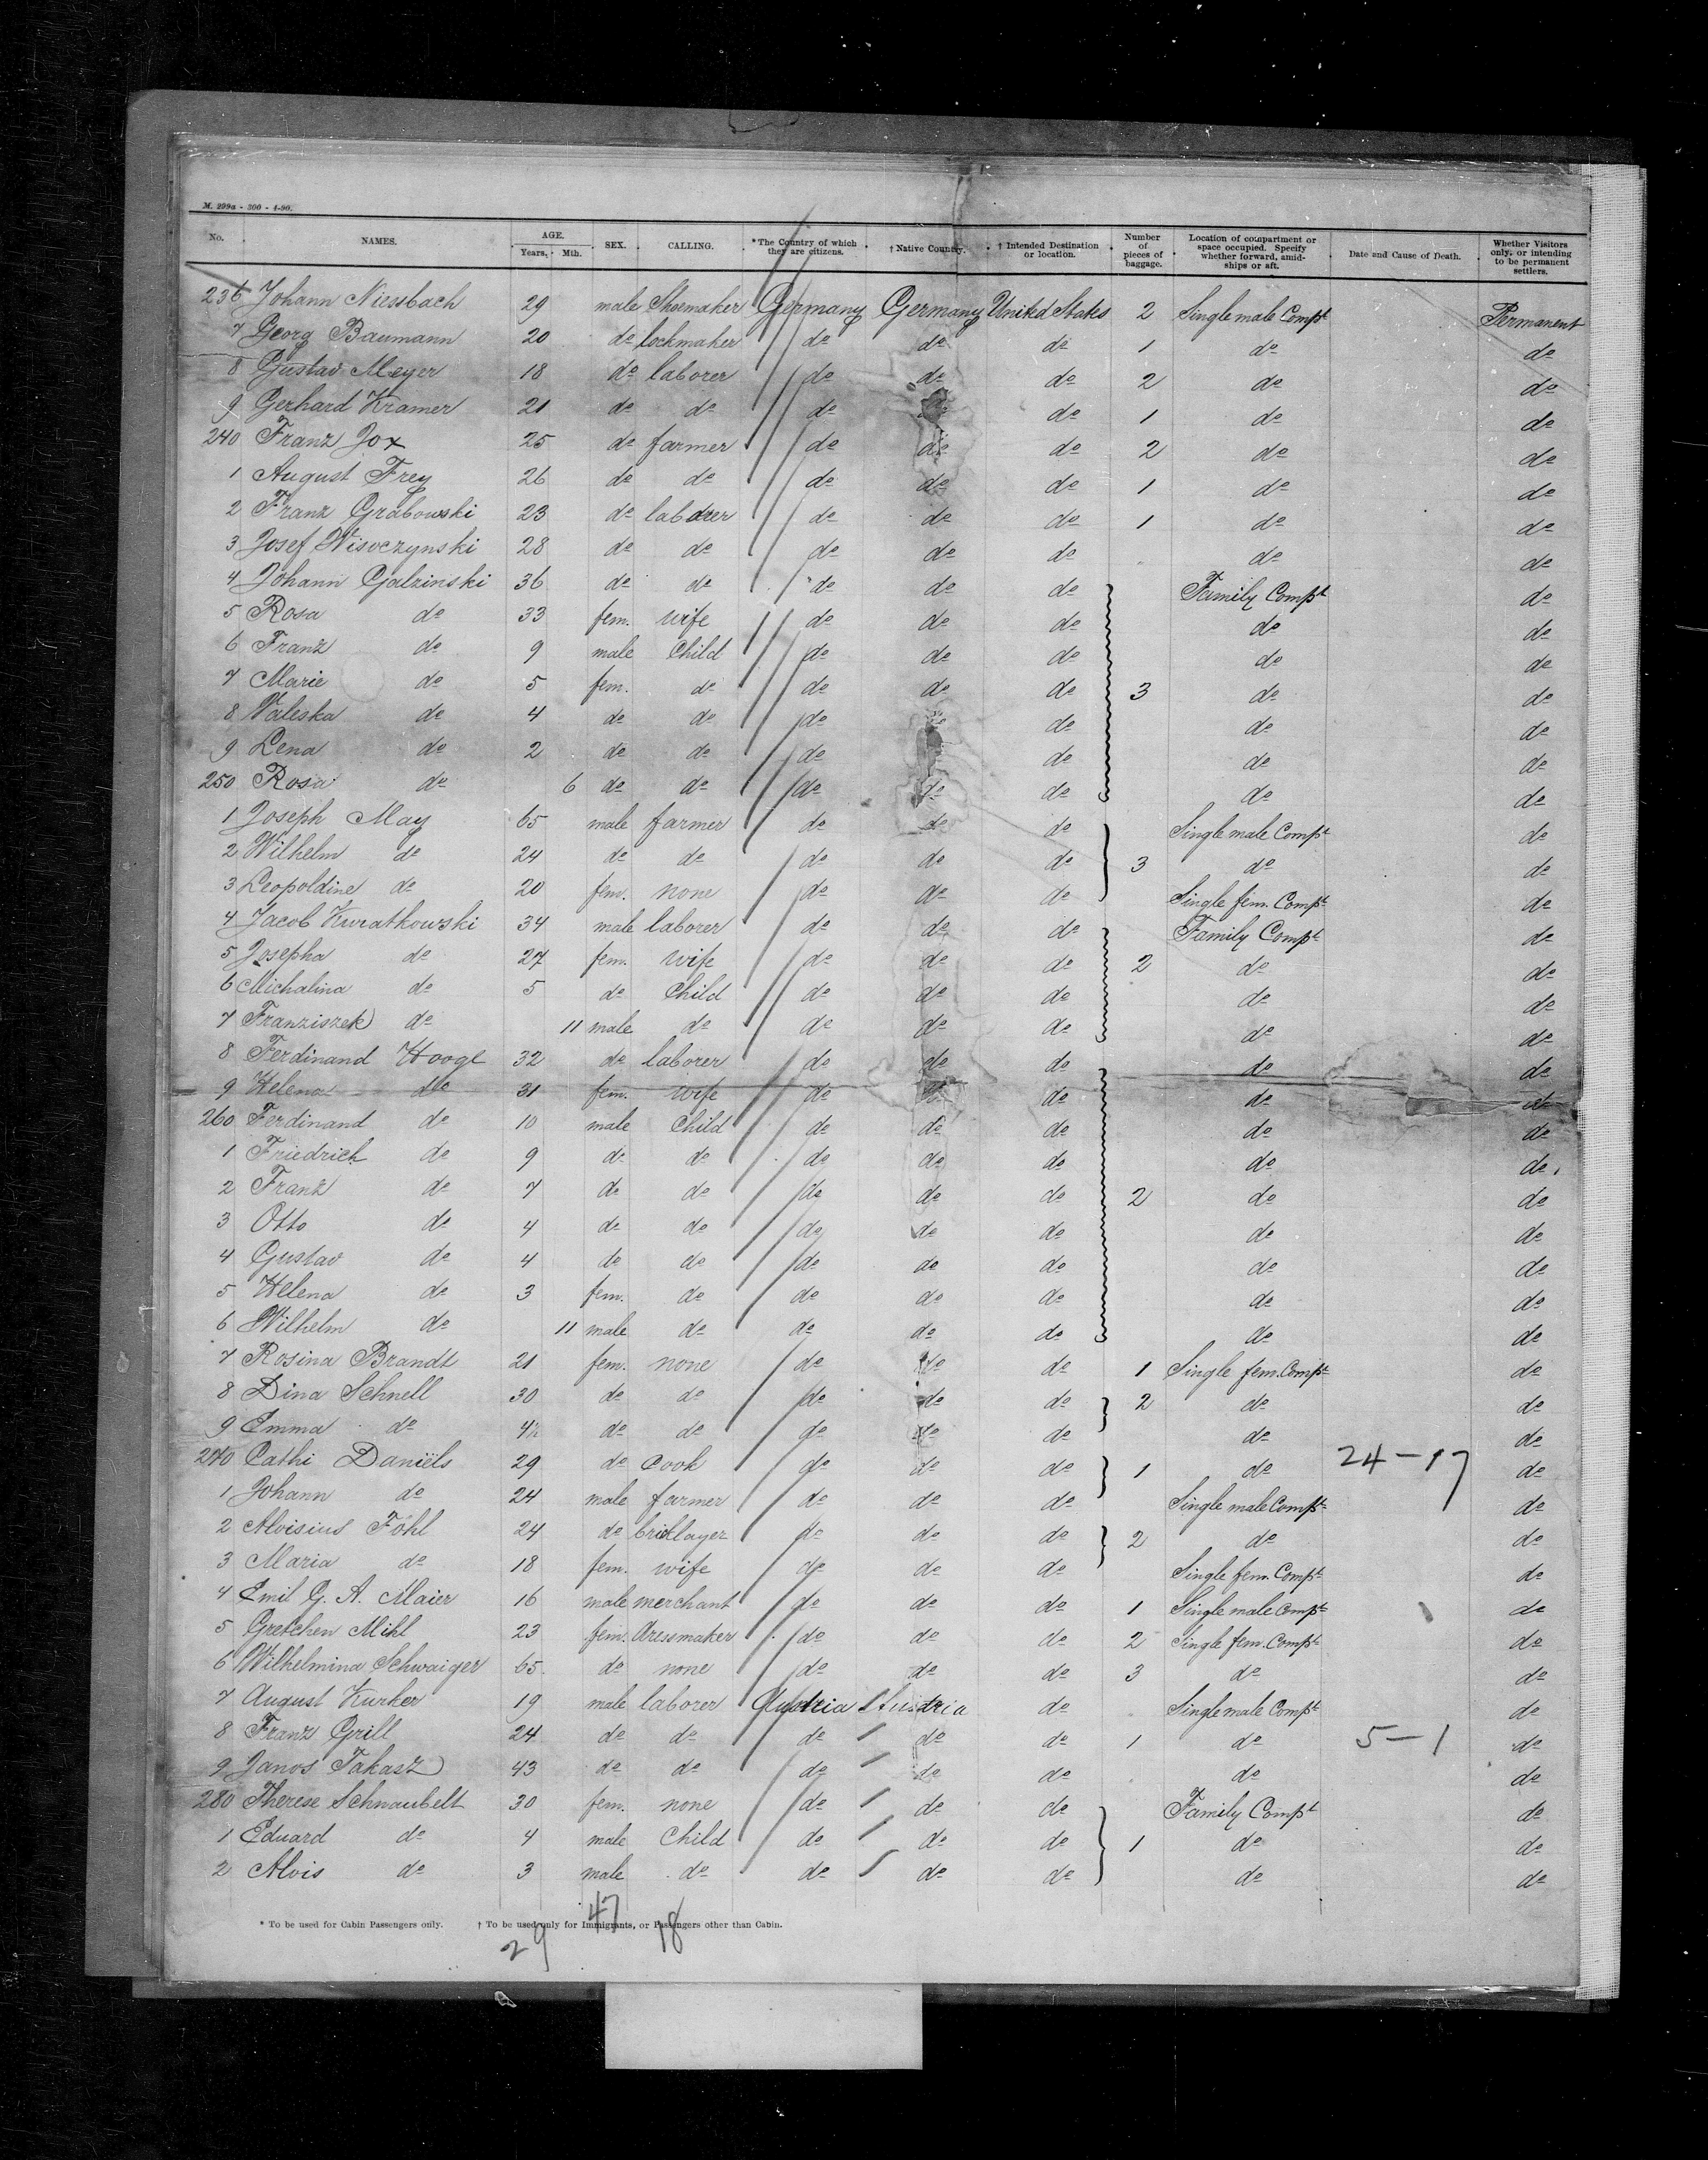 M. 299a - 300 - 4-90.
No. NAMES. AGE. Years. Mth. SEX. CALLING. *The Country of which they are citizens. † Native Country. † Intended Destination or location. Number of pieces of baggage. Location of compartment or space occupied. Specify whether forward, amid-ships or aft. Date and Cause of Death. Whether Visitors only, or intending to be permanent settlers.
236 Johann Niessbach 29 male Shoemaker Germany Germany United States 2 Single male Compt Permanent
7 Georg Baumann 20 do lockmaker do do do 1 do do
8 Gustav Meyer 18 do laborer do do do 2 do do
9 Gerhard Kramer 21 do do do do do 1 do do
240 Franz Jox 25 do farmer do do do 2 do do
1 August Frey 26 do do do do do 1 do do
2 Franz Grabowski 23 do laborer do do do 1 do do
3 Josef Wisoczynski 28 do do do do do do do
4 Johann Galzinski 36 do do do do do Family Compt do
5 Rosa do 33 fem. wife do do do do do
6 Franz do 9 male Child do do do do do
7 Marie do 5 fem. do do do do 3 do do
8 Valeska do 4 do do do do do do do
9 Lena do 2 do do do do do do
250 Rosa do 6 do do do do do do do
1 Joseph May 65 male farmer do do do Single male Compt do
2 Wilhelm do 24 do do do do do 3 do do
3 Leopoldine do 20 fem. none do do do Single fem. Compt do
4 Jacob Kwiatkowski 34 male laborer do do do Family Compt do
5 Josepha do 27 fem. wife do do do 2 do do
6 Michalina do 5 do Child do do do do do
7 Franziszek do 11 male do do do do do do
8 Ferdinand Hooge 32 do laborer do do do do do
9 Helena do 31 fem. wife do do do do do
260 Ferdinand do 10 male Child do do do do do
1 Friedrich do 9 do do do do do do do
2 Franz do 7 do do do do do 2 do do
3 Otto do 4 do do do do do do do
4 Gustav do 4 do do do do do do do
5 Helena do 3 fem. do do do do do do
6 Wilhelm do 11 male do do do do do do
7 Rosina Brandt 21 fem. none do do do 1 Single fem. Compt do
8 Dina Schnell 30 do do do do do 2 do do
9 Emma do do do do do do do do
270 Cathi Daniëls 29 do Cook do do do 1 do 24-17 do
1 Johann do 24 male farmer do do do Single male Compt do
2 Aloisius Föhl 24 do bricklayer do do do 2 do do
3 Maria do 18 fem. wife do do do Single fem. Compt do
4 Emil G. A. Maier 16 male merchant do do do 1 Single male Compt do
5 Gretchen Mihl 23 fem. dressmaker do do do 2 Single fem. Compt do
6 Wilhelmina Schwaiger 65 do none do do do 3 do do
7 August Kurker 19 male laborer Austria Austria do Single male Compt do
8 Franz Grill 24 do do do do do 1 do 5-1 do
9 Janos Takasz 43 do do do do do do do
280 Therese Schnaubelt 30 fem. none do do do Family Compt do
1 Eduard do 4 male Child do do do 1 do do
2 Alois do 3 male do do do do do do
47
* To be used for Cabin Passengers only. † To be used only for Immigrants, or Passengers other than Cabin.
29 18